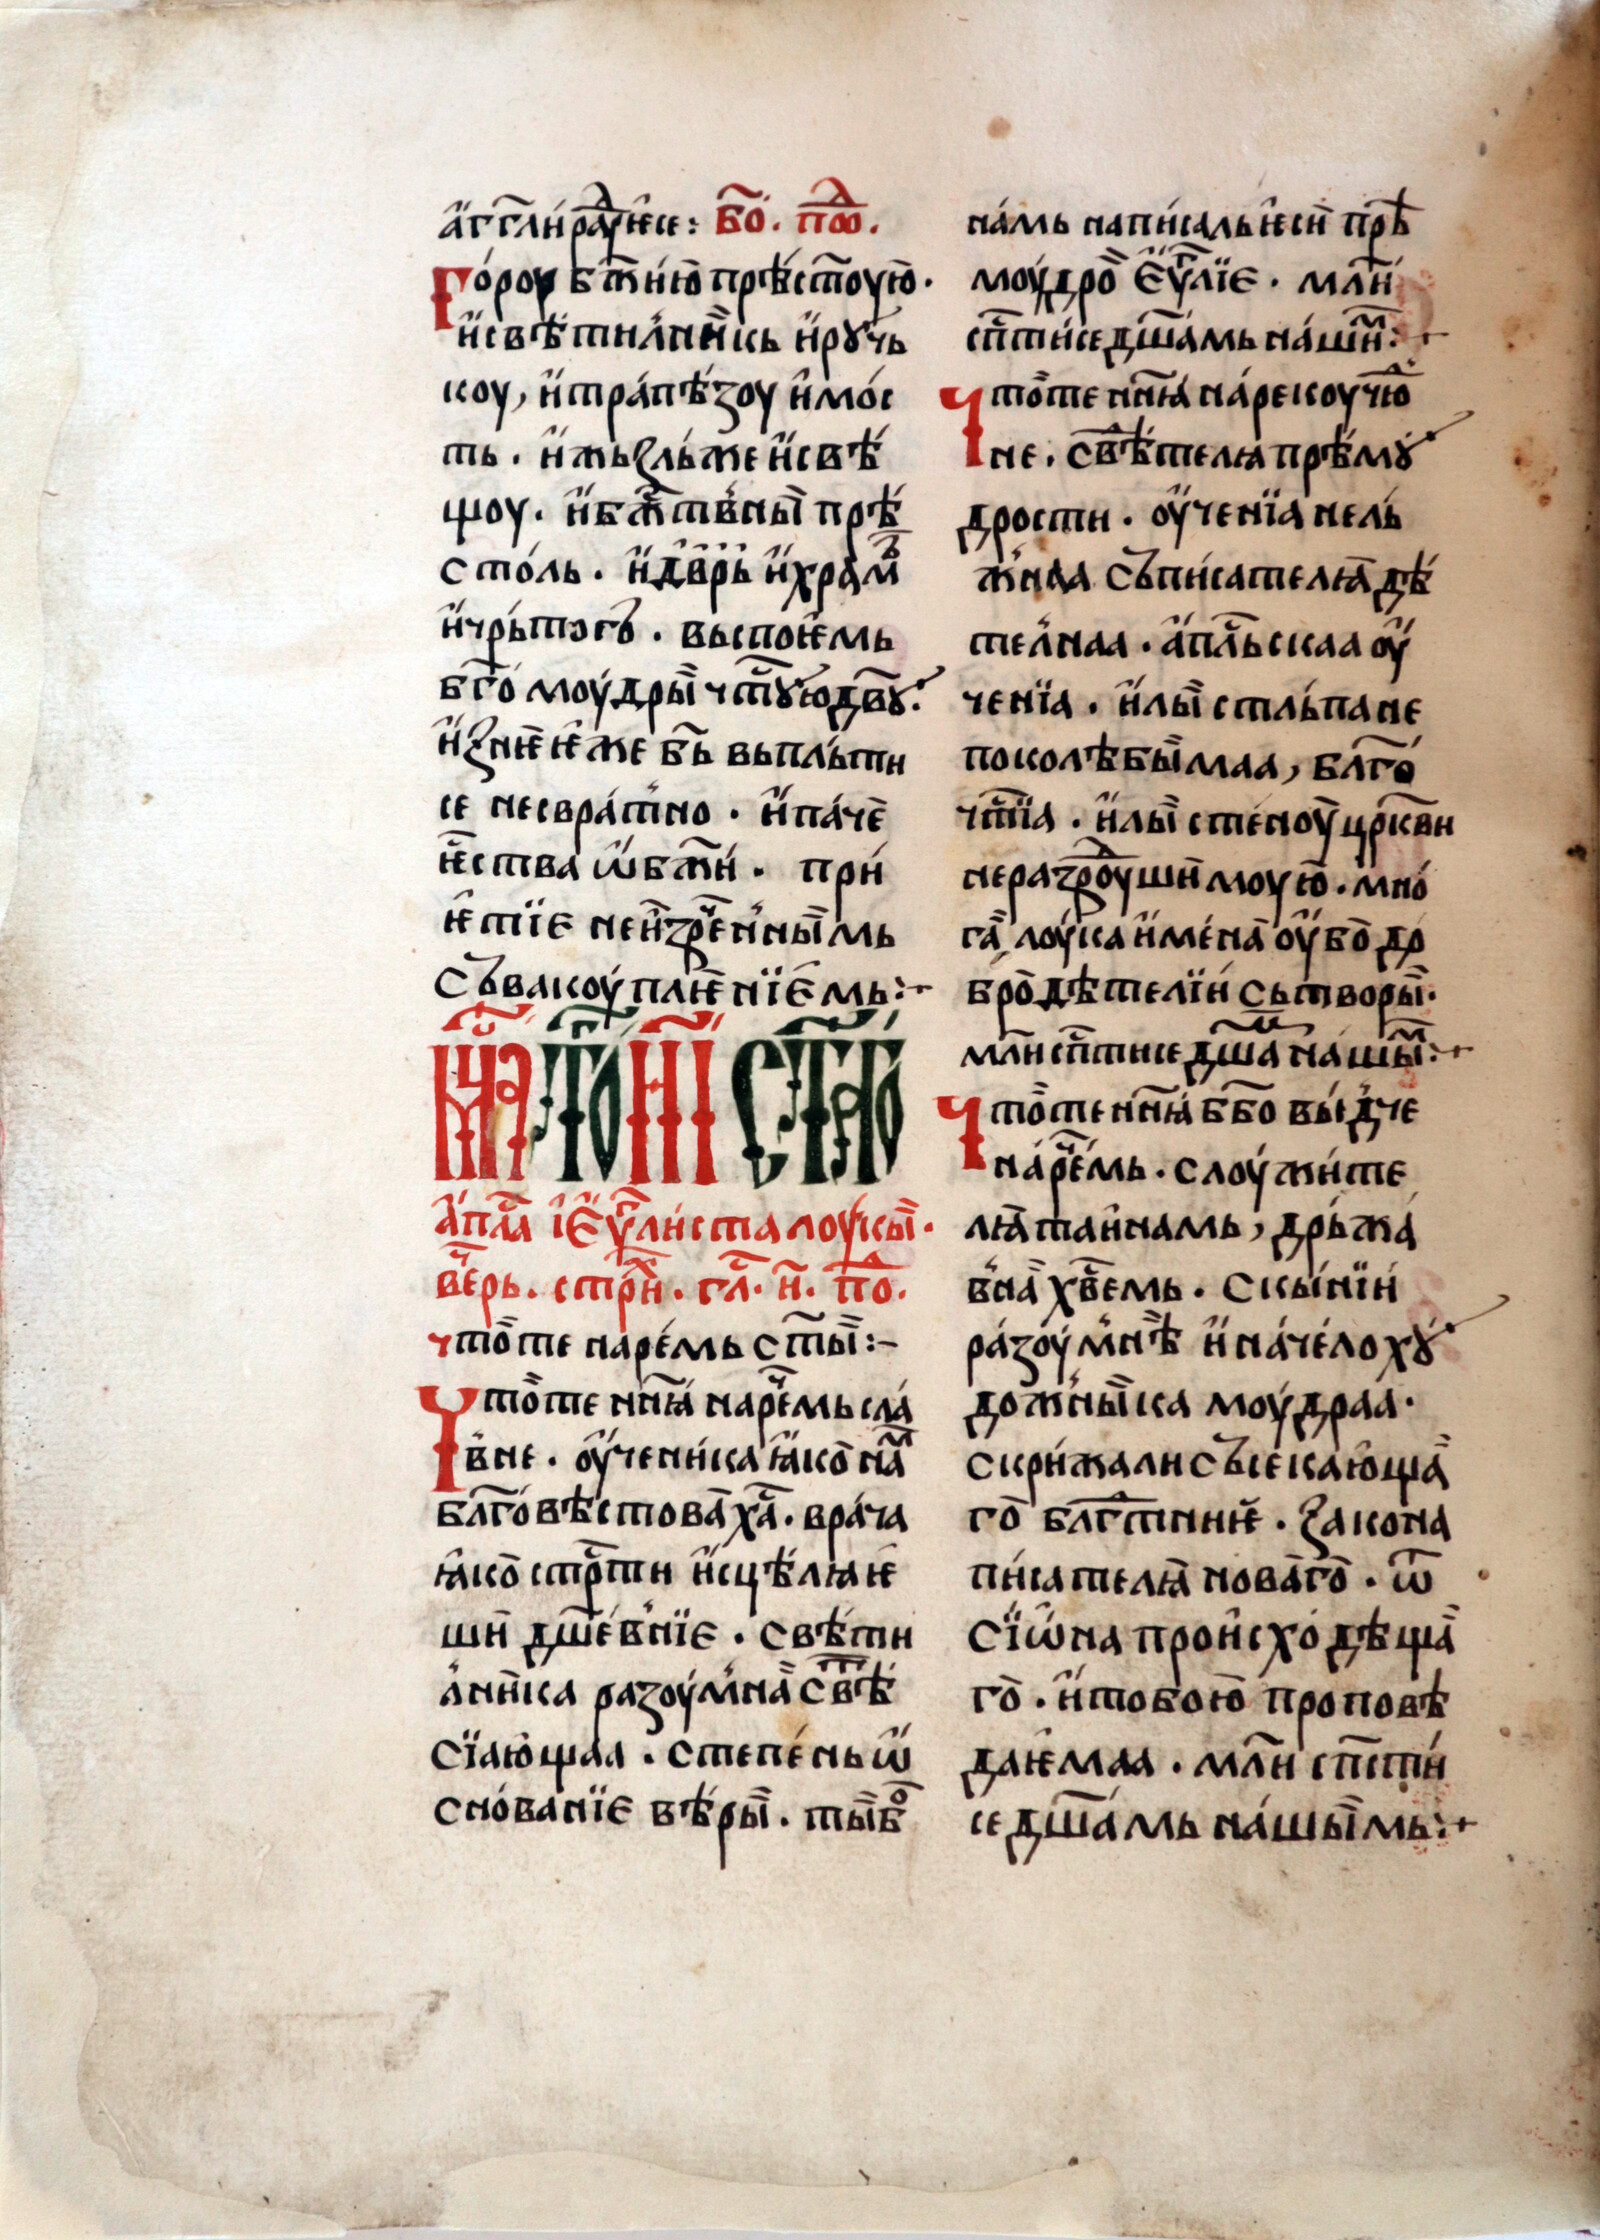 а҆г҃гли́ ра́дꙋ́ѥ҆ се: бо҃. по҃д.
Го́роу бж҃їю прѣ́стоую҆.
и҆свѣ́тилни҆кь и҆рꙋ́чь
коу, и҆тра́пѣзоу и҆мо́с
ть. и҆жьꙁль́же и҆свѣ́
щоу. и҆бж҃ствны́ прѣ́
сто́ль. и҆две́рь и҆хра́мь
и҆чрь́тогь. вьспоѥ҆мь
бг҃омоу́дры чтⷭ҇ꙋ́ю дв҃ꙋ.
и҆ꙁнѥ́ѥ҆же бь҃ вьпль́ти
се несвра́тно. и҆па́че
ѥ҆ства ѿбж҃и́. при́
ѥ҆тїе неи҆ꙁре́чны́мь
сь́вакоу плѥ́нїе́мь:
Мⷭ҇ца то́ иі ст҃го
а҆пⷭ҇ла і҆е҆ѵⷢ҇ли́ста лоукы̀.
ве́чрь. стры́. гла́. и҃. по҃д.
что́ те наре́мь ст҃ы:–
Что́ те нн҃ꙗ́ наре́чⷨемь сла́
вне. оу҆чени́ка ꙗ҆ко на́м
блг҃овѣ́стова х҃а. вра́ча
ꙗ҆ко стрⷭ҇ти и҆сцѣ́лꙗѥ
ши́ дш҃е́внїе. свѣ́ти
лни́ка разоу́мна свѣ́т
сїаю҆щаа. степе́нь ѿ
сно́ванїе вѣ́ры. ты́бо
на́мь напи́саль ѥ҆сы прѣ́
моу́дро є҆ѵⷢ҇лїе. мл҃и́
сп҃сти́ се дш҃а́мь на́шим:
Что́ те нн҃ꙗ́ на́рекоу чю́д
не. свѣ́телꙗ прѣ́мꙋ
дрости. оу҆ченїа нель́
жнаа сь́писателꙗ дѣ́
телнаа. а҆пⷭ҇льскаа оу҆
ченїа. и҆лы́ стль́па не
поколѣбы́маа, блг҃о
чтⷭ҇їа. и҆лы́ сте́ноу црк҃вн
неразроу́шимоую҆. мно́
га лоу́ка и҆ме́на оу҆бо до
бродѣ́телїи сьтворы̀.
мл҃и сп҃сти се дш҃а́м на́шым:
Что́ те нн҃ꙗ́ бб҃о вы́дче
на́ре́чⷨемь. слоу́жи́те
лꙗ та́и҆намь, дрь́жа́
вна хв҃емь. скы́нїи
ра́зоу́мнѣ и҆ на́че́ло хꙋ
до́жны́ка моу́драа.
скри́жали сьсекаю҆ща
го блг҃тинѥ. ꙁакона
пи́сателꙗ нова́го. ѿ
сїѡ҆на прои҆схо́дѣща
го. и҆тобою҆ проповѣ
даѥ҆маа. мл҃и сп҃сти́
се дш҃а́мь на́шы́мь: